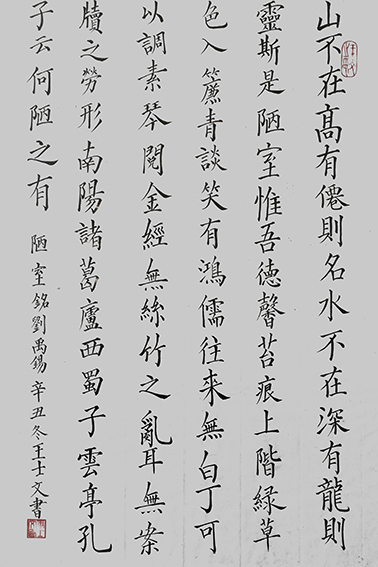 山不在高有僊則名水不在深有龍則
靈斯是陋室惟吾德馨苔痕上階綠草
色入簾青談笑有鴻儒往来無白丁可
以調素琴閱金經無絲竹之亂耳無案
牘之勞形南陽諸葛廬西蜀子雲亭孔
子云何陋之有
陋室銘劉禹錫辛丑冬王士文書